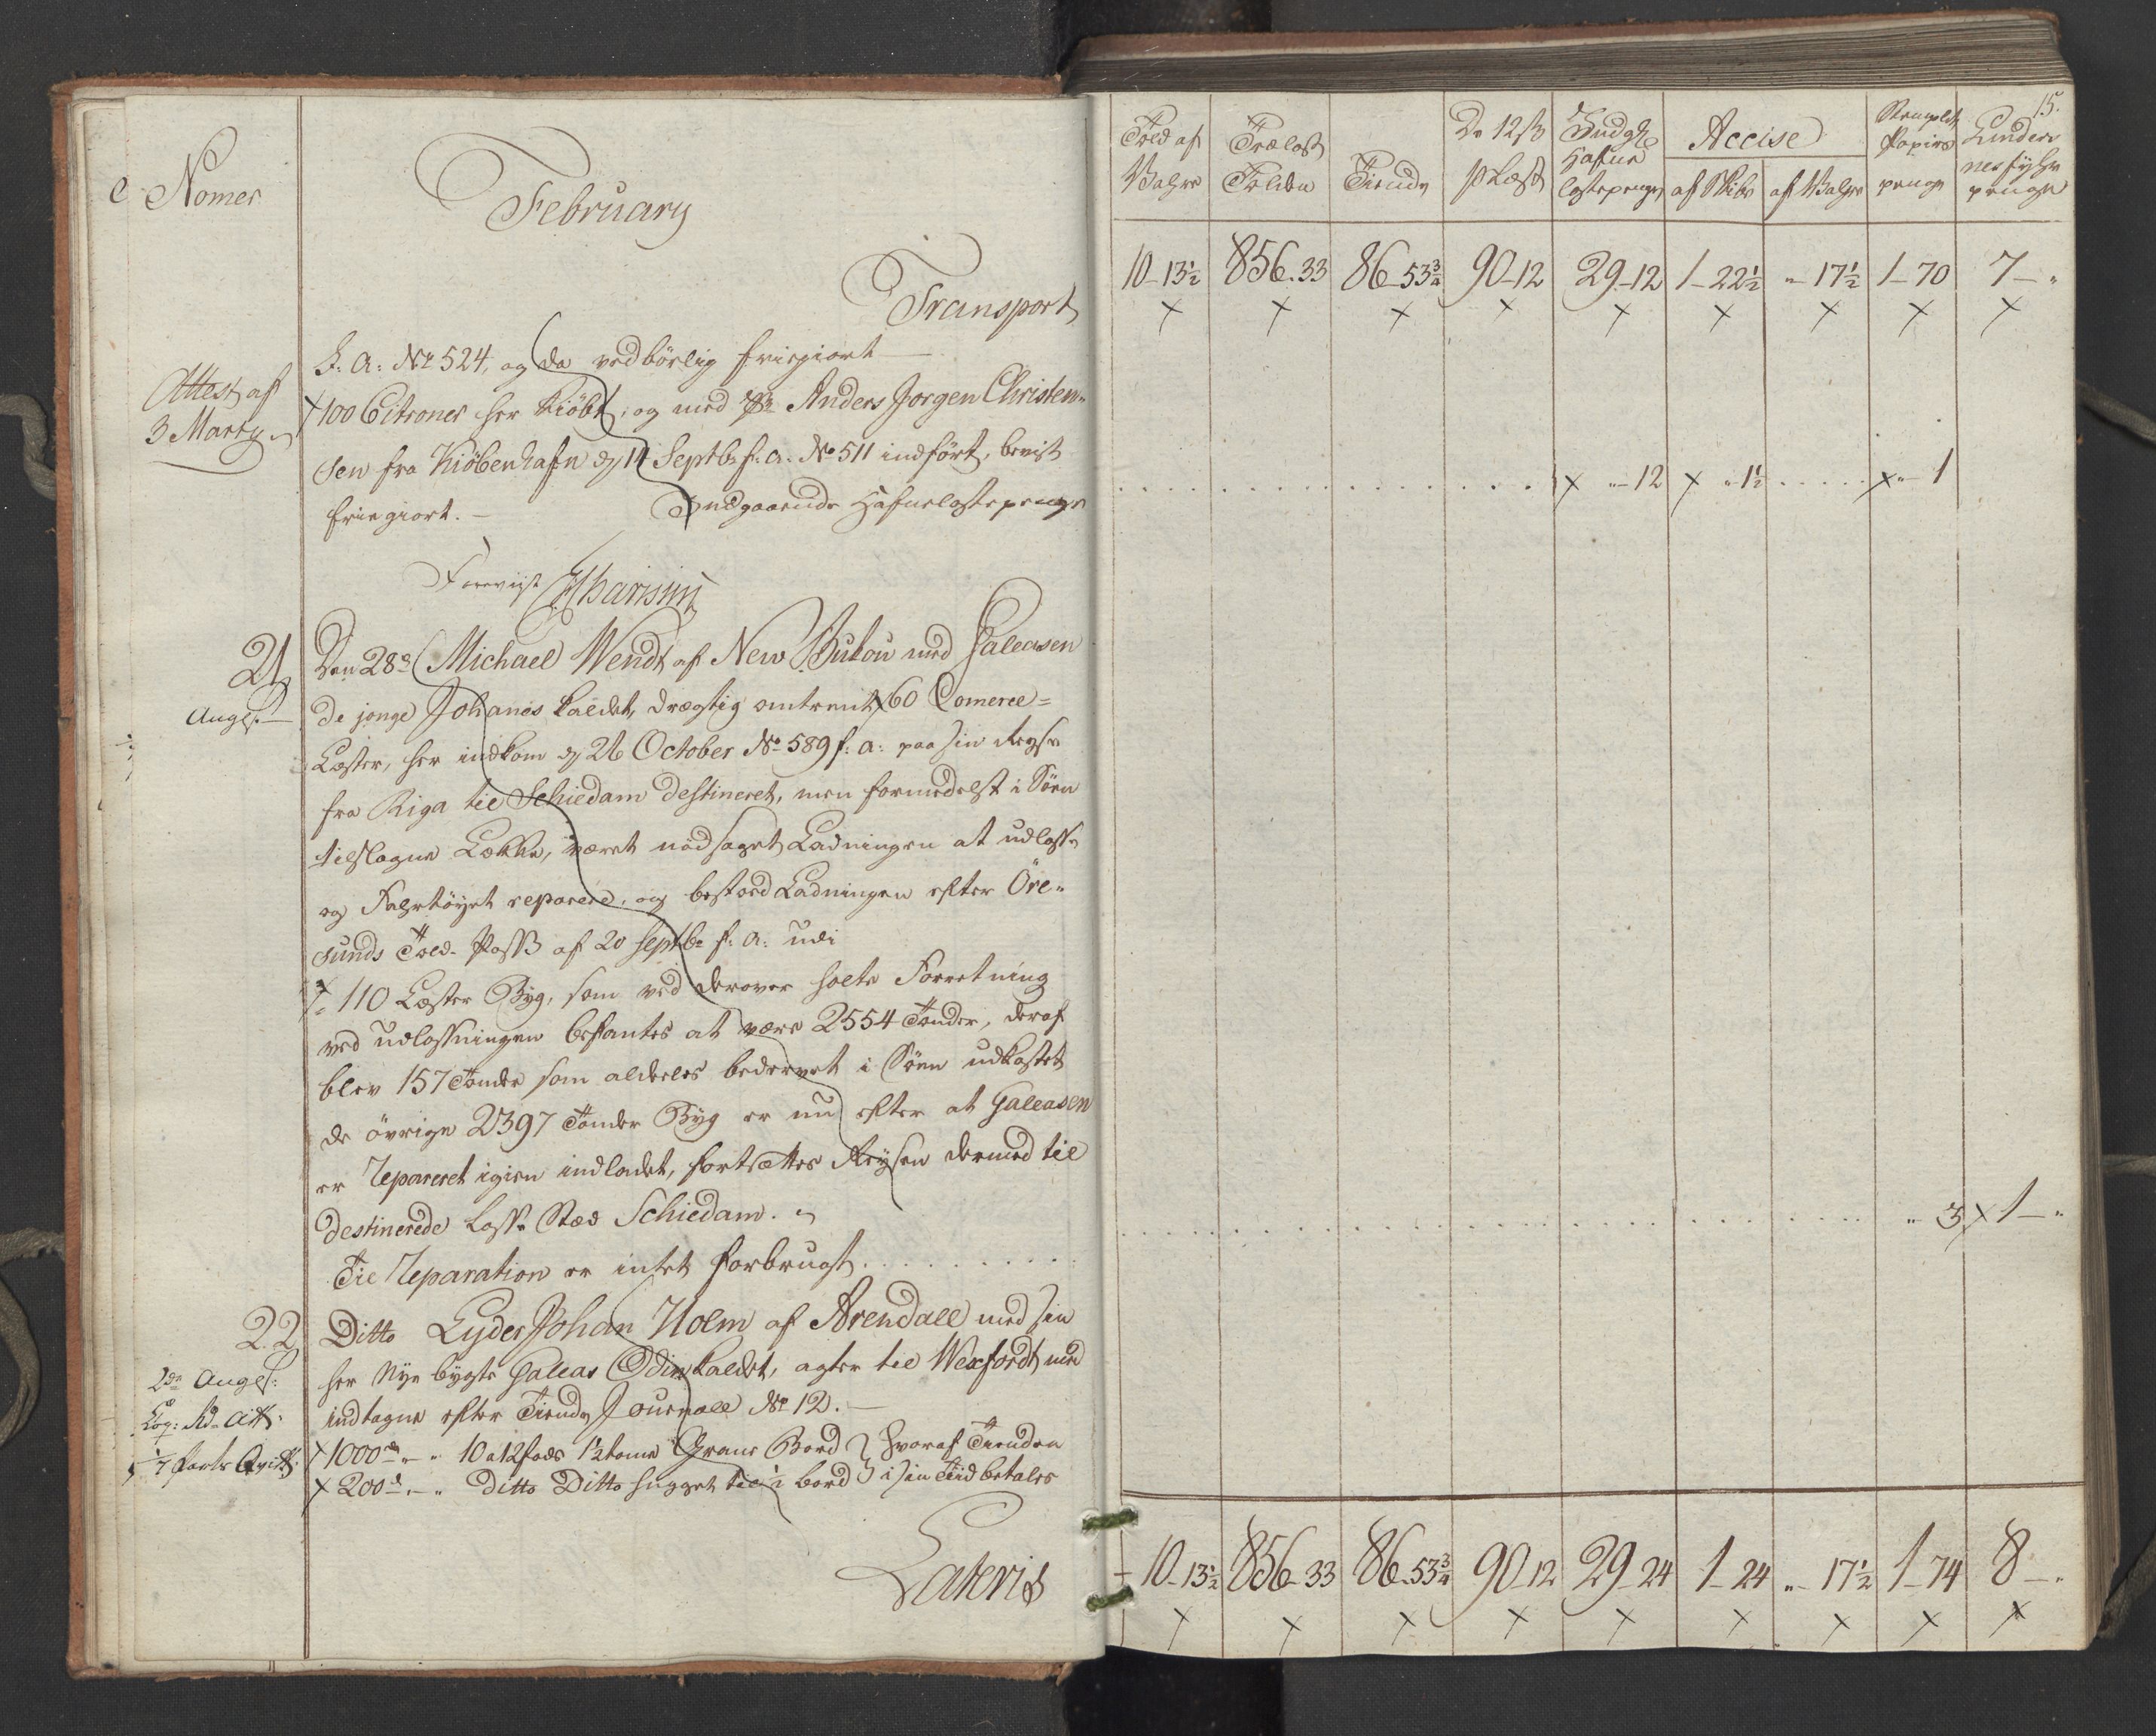 Nomer
February
Transport
f: a: No 524, og da vedbörlig friegiort
Attest af
3 Marty
100 Citroner her kiöbt, og med Anders Jorgen Christen-
sen fra Kiöbenhafn d 11 Septbr f: a: No 511 indfört, bevist
friegiort. — Indgaaende Hafnelastepenge
Foreviist
21
Den 28de Michael Wendt af New Bukou med Galeasen
Angl:
de jonge Johanes kaldet, drægtig omtrent 60 Comerce=
Læster, her indkom d 26 October No 589 f: a: paa sin Reyse
fra Riga til Schiedam destineret, men formedelst i Söen
tilslagne Lække, været nödsaget Ladningen at udlosse
og Fartöyet reparere, og bestoed Ladningen efter Öre-
sunds Told-Pass af 20 Septbr f: a: udi
110 Læster Byg, som ved derover holte Forretning
ved udlossningen befantes at være 2554 Tönder, deraf
blev 157 Tönder som aldeeles bedervet i Söen udkastet
de övrige 2397 Tönder Byg er nu efter at Galeasen
er repareret igien indladet, fortsætter Reysen dermed til
destinerede Losse Stæd Schiedam.
Til Reparation er intet forbrugt . . . . . . . . .
22
Ditto Lyder Johan Holm af Arendall med sin
2de Angl:
her Nye bygte Galeas Odin kaldet, agter til Wexfordt med
indtagne efter Tiende Journall No 12. —
1000de „ — „ 10 a 12 fods 1½ tome Grane Bord } hvoraf Tienden
200de „ — „ Ditto Ditto hugget til ½ bord } i sin Tiid betales
Lateris
15.
Told af Vahre
Trælast Tolden
Tiende
De 12 s p Læst
Indgde Hafne lastepenge
Accise
af Skibe
af Vahre
Stemplet Papirs penge
10 - 13½ 856 - 33 86 - 53¾ 90 - 12 29 - 12 1 - 22½ „ - 17½ 1 - 70 7 - „
„ - 12 „ - 1½ „ - 1
„ 3 1 - „
10 - 13½ 856 - 33 86 - 53¾ 90 - 12 29 - 24 1 - 24 „ - 17½ 1 - 74 8 - „